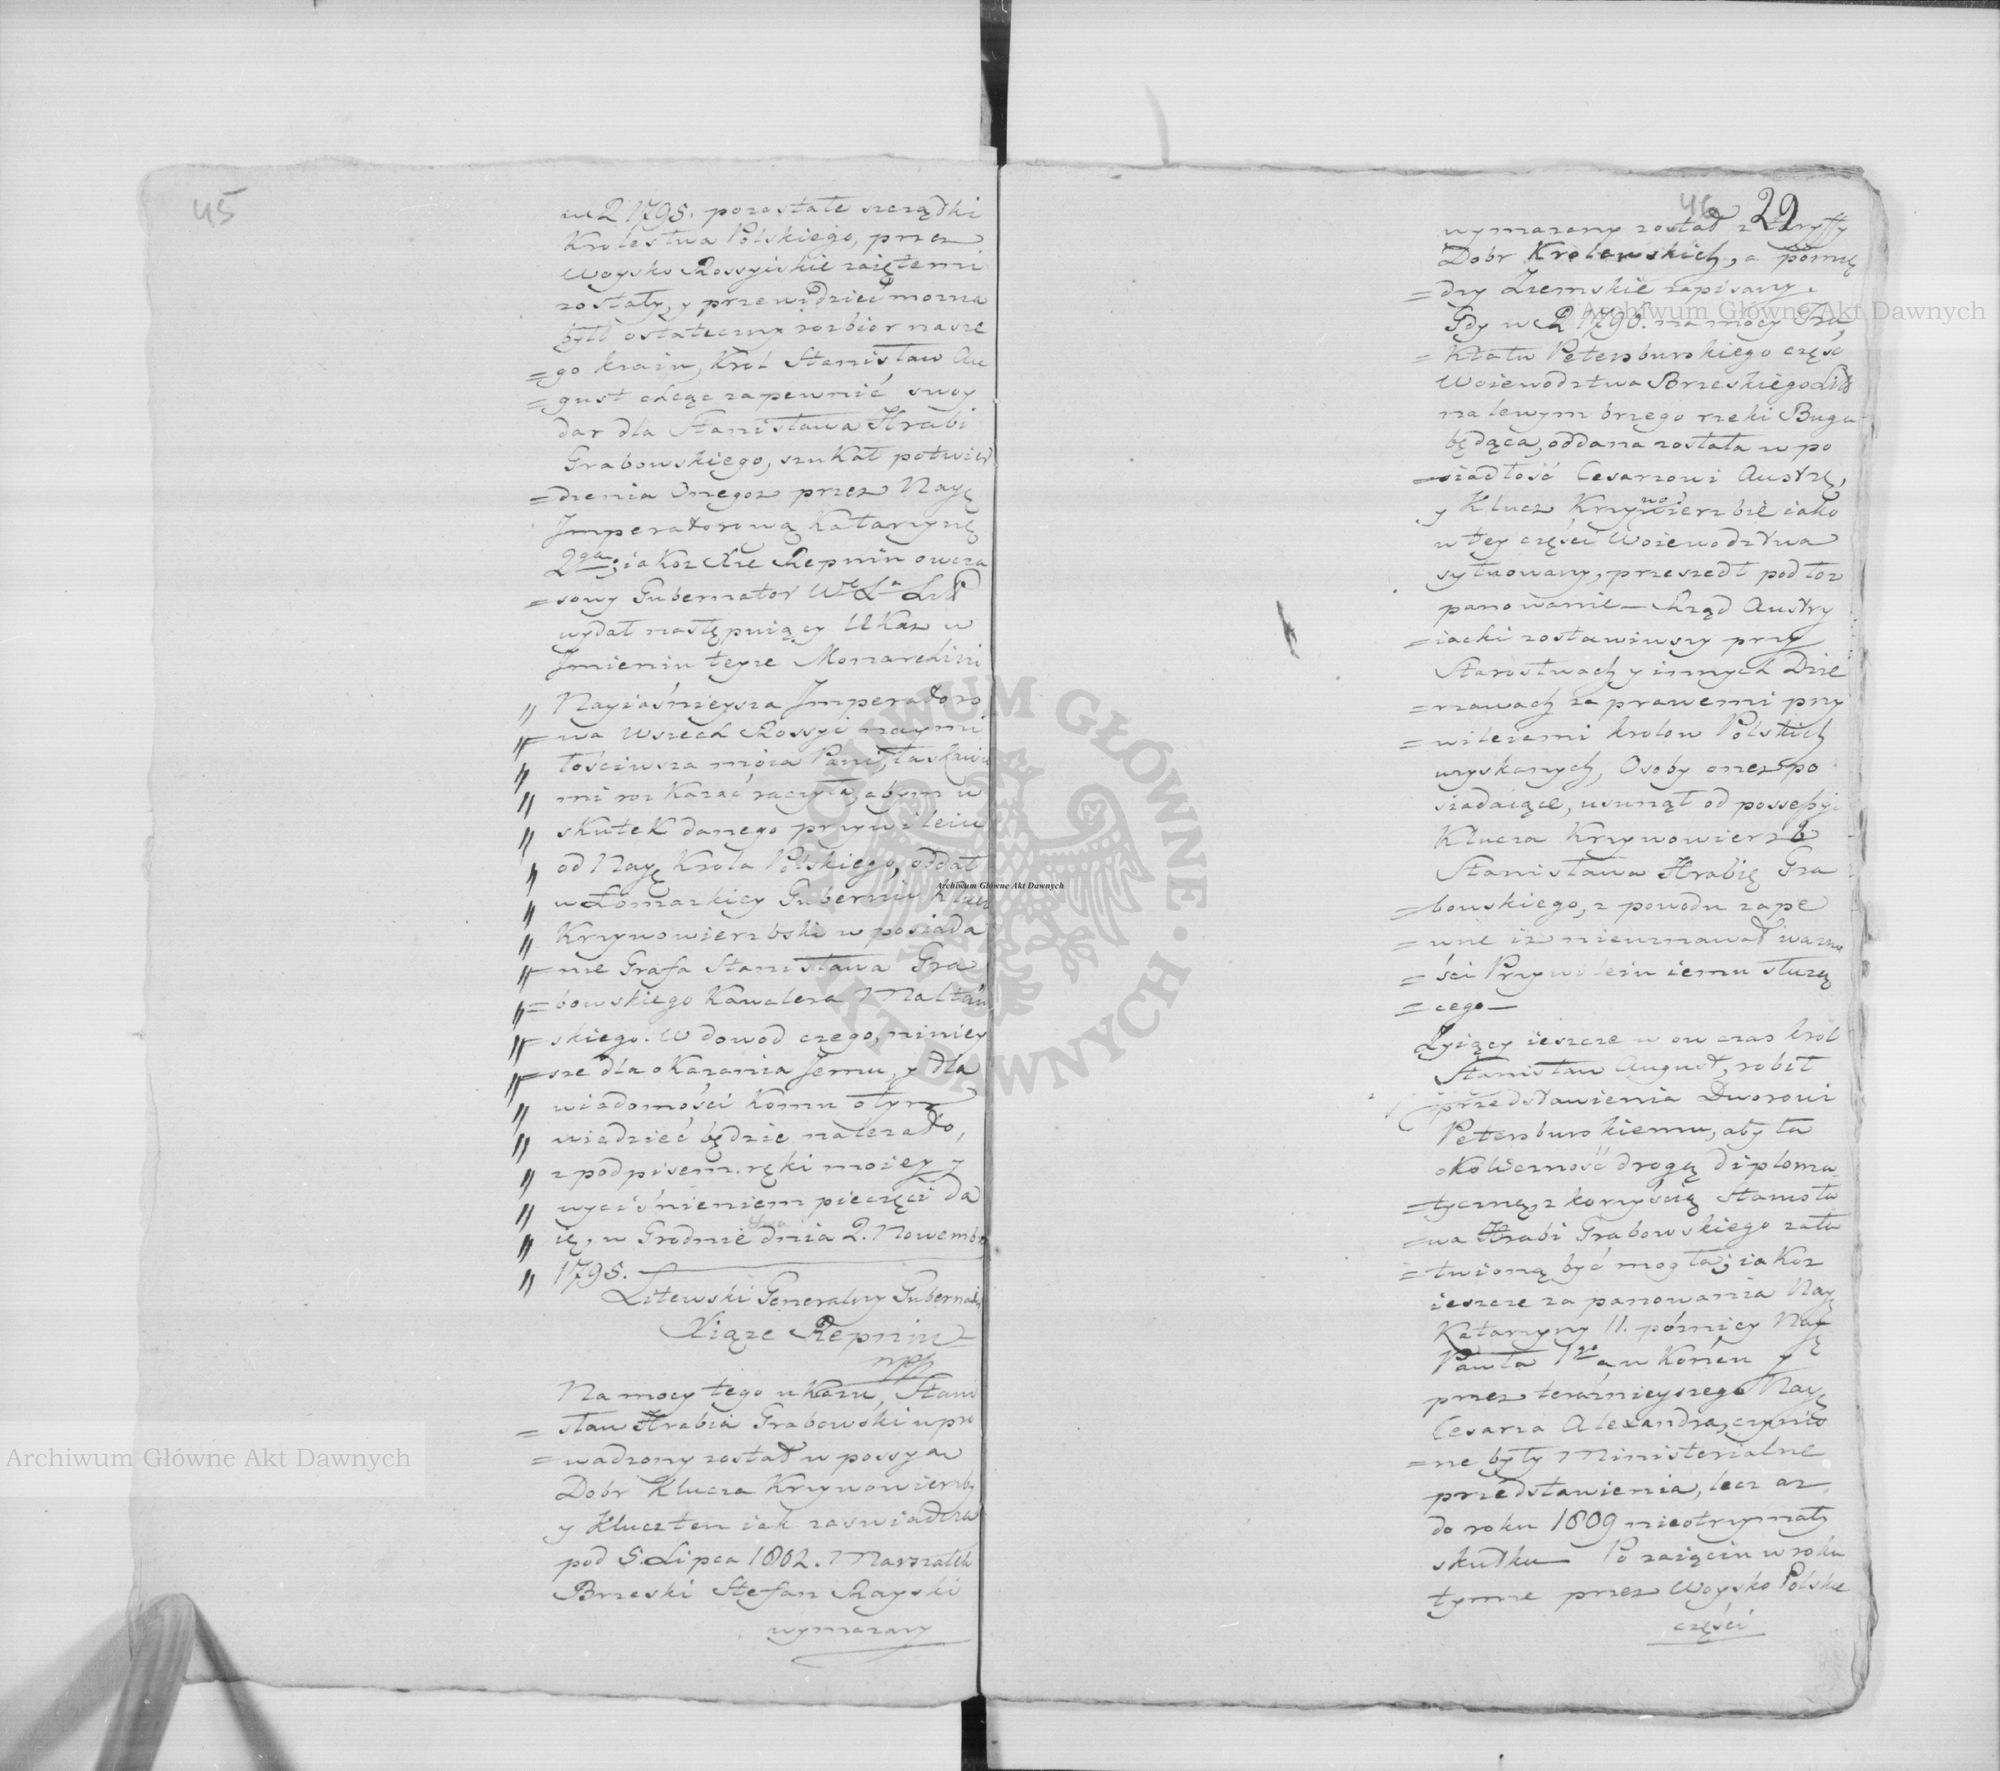 45
w R 1795. pozostałe szczątki
Krolestwa Polskiego, przez
Woysko Rossyiskie zaiętemi
zostały, y przewidzieć mozna
było ostateczny rozbior nasze
=go kraiu, Krol Stanisław Au
=gust chcąc zapewnić swoy
dar dla Stanisława Hrabi
Grabowskiego, szukał potwier
=dzenia Onegoz przez Nayę
Jmperatorową Katarzynę
2gą; iakoz Xże Repnin owcza
=sowy Gubernator Wo Lo Litt
wydał następuiący Ukaz w
Jmieniu teyze Monarchini
" Nayiaśnieysza Jmperatoro
" =wa Wszech Rossyi naymi
" łościwsza moia Pani, łaskawie
" mi roz kazać raczyła, abym w
" skutek danego przywileiu
" od Nayę Krola Polskiego, oddał
" w Łomzaskiey Gubernii Klucz
" Krzywowierzbski w posiada
" =nie Grafa Stanisława Gra
" =bowskiego Kawalera Maltań
" =skiego. W dowod czego, niniey
" =sze dla okazania Jemu, y dla
" wiadomości komu o tym
" wiedzieć będzie nalezało,
" z podpisem ręki moiey y
" wyciśnieniem pieczęci da
" ię, w Grodnie dnia 2. Nowembr
" 1795.
Litewski Generalny Gubernator
Xiąze Repnin
mpp
Na mocy tego ukazu, Stani
=sław Hrabia Grabowski wpro
=wadzony został w possyą
Dobr Klucza Krzywowierzby
y Klucz ten iak zaswiadcza
pod 5. Lipca 1802. Marszałek
Brzeski Stefan Rayski
wymazany
46 29
wymazany został z taryffy
Dobr Krolewskich, a pomię
=dzy Ziemskie zapisany.
Gdy w R 1796. na mocy Tra
=ktatu Petersburskiego część
Woiewodztwa Brzeskiego Litt
na lewym brzegu rzeki Bugu
będąca, oddana została w po
=siadłość Cesarzowi Austrę,
y Klucz Krzywowierzbie iako
w tey części Woiewodztwa
sytuowany, przeszedł pod toz
panowanie — Rząd Austry
=iacki zostawiwszy przy
Starostwach y innych Dzie
=rzawach za prawemi przy
=wileiami krolow Polskich
uzyskanych, Osoby onez po
siadaiące, usunął od possessyi
Klucza Krzywowierzb
Stanisława Hrabię Gra
=bowskiego, z powodu zape
=wne iz nieuznawał wazno
=ści Przywileiu iemu słuzą
=cego —
Zyiący ieszcze w ow czas krol
Stanisław August, robił
przedstawienia Dworowi
Petersburskiemu, aby ta
okoliczność drogą diploma
=tyczną, z korzyścią Stanisła
=wa Hrabi Grabowskiego zała
=twioną być mogła; iakoz
ieszcze za panowania Nayę
Katarzyny II. pózniey Nayę
Pawła 1go a w koncu y
przez teraznieyszego Nayę
Cesarza Alexandra, czynio
=ne były Ministerialne
przedstawienia, lecz az
do roku 1809 nieotrzymały
skutku — Po zaięciu w roku
tymze przez Woysko Polskie
części
Archiwum Główne Akt Dawnych
Archiwum Główne Akt Dawnych
Archiwum Główne Akt Dawnych
ARCHIWUM GŁÓWNE AKT DAWNYCH